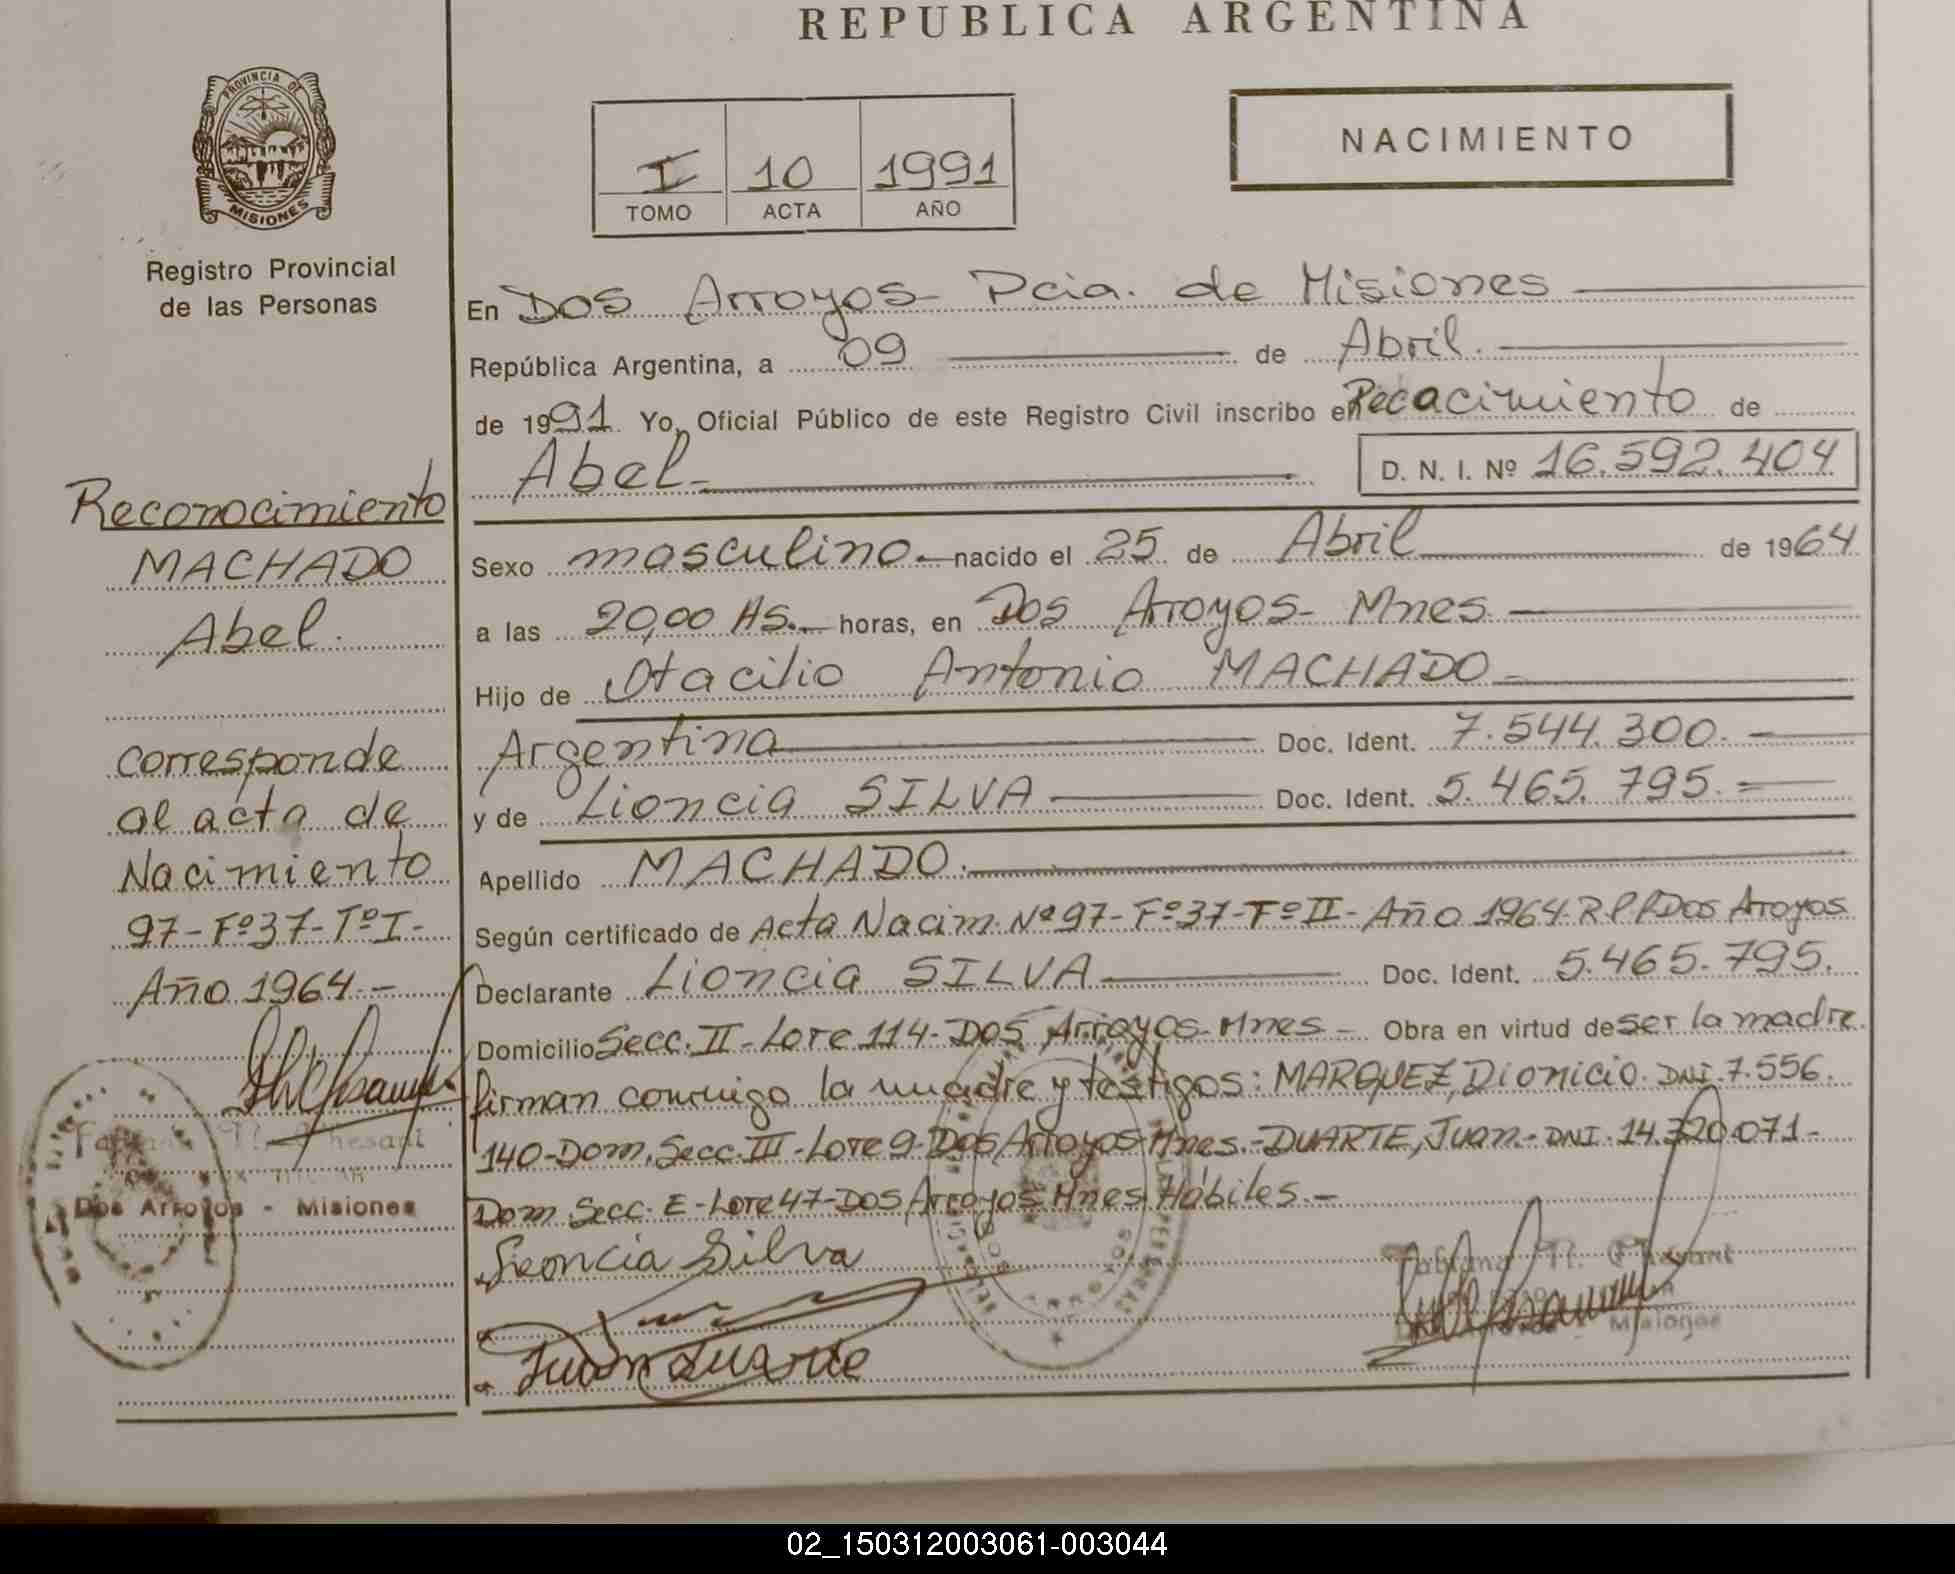 REPUBLICA ARGENTINA
PROVINCIA DE
MISIONES
Registro Provincial
de las Personas
I 10 1991
TOMO ACTA AÑO
NACIMIENTO
En Dos Arroyos Pcia. de Misiones
República Argentina, a 09 de Abril.
de 1991. Yo, Oficial Público de este Registro Civil inscribo el de
Abel D. N. I. Nº 16.592.404
Sexo masculino nacido el 25 de Abril de 1964
a las 20,00 Hs. horas, en Dos Arroyos - Mnes
Hijo de Otacilio Antonio MACHADO
Argentina Doc. Ident. 7.544.300.
y de Lioncia SILVA Doc. Ident. 5.465.795.
Apellido MACHADO.
Según certificado de Acta Nacim. Nº 97-Fº37-Tº II - Año 1964 R.P.P. Dos Arroyos
Declarante Lioncia SILVA Doc. Ident. 5.465.795.
Domicilio Secc. II - Lote 114 - Dos Arroyos - Mnes - Obra en virtud de ser la madre.
firman conmigo la madre y testigos: MARQUEZ, Dionicio. DNI. 7.556.
140 - Dom. Secc. III - Lote 9 - Dos Arroyos - Mnes. - DUARTE, Juan. - DNI. 14.720.071 -
Dom. Secc. E - Lote 47 - Dos Arroyos Mnes Hábiles. -
Leoncia Silva
Juan Duarte
Fabiana N. Chesani
Misiones
Reconocimiento
MACHADO
Abel.
corresponde
al acta de
Nacimiento
97-Fº37-TºI-
Año 1964.-
Dos Arroyos - Misiones
02_150312003061-003044